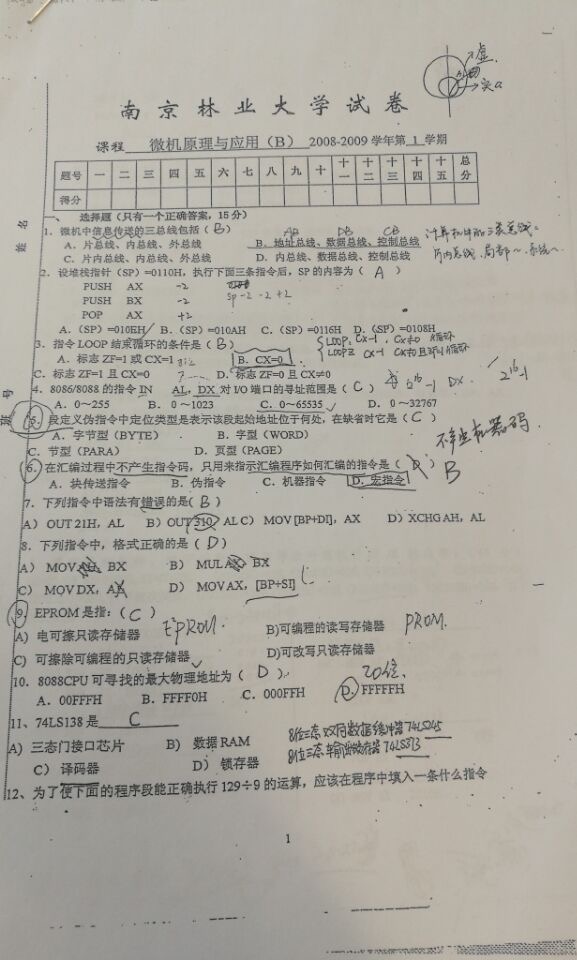 虚
实
南京林业大学试卷
课程 微机原理与应用（B） 2008-2009 学年第 1 学期
题号 一 二 三 四 五 六 七 八 九 十 十一 十二 十三 十四 十五 总分
得分
姓名
一、 选择题（只有一个正确答案，15 分）
AB DB CB
1. 微机中信息传送的三总线包括（ B ）
A、片总线、内总线、外总线 B、地址总线、数据总线、控制总线
C、片内总线、内总线、外总线 D、内总线、数据总线、控制总线
2．设堆栈指针（SP）=0110H，执行下面三条指令后，SP 的内容为（ A ）
PUSH AX -2
PUSH BX -2 SP -2 -2 +2
POP AX +2
A.（SP）=010EH B.（SP）=010AH C.（SP）=0116H D.（SP）=0108H
3．指令 LOOP 结束循环的条件是（ B ）
A．标志 ZF=1 或 CX=1 B．CX=0
C．标志 ZF=1 且 CX=0 D．标志 ZF=0 且 CX≠0
4．8086/8088 的指令 IN AL，DX 对 I/O 端口的寻址范围是（ C ） 2^16-1 DX. 2^16-1
A．0～255 B．0～1023 C．0～65535 D．0～32767
号
5．段定义伪指令中定位类型是表示该段起始地址位于何处，在缺省时它是（ C ）
A．字节型（BYTE） B．字型（WORD）
C．节型（PARA） D．页型（PAGE）
不产生机器码.
6．在汇编过程中不产生指令码，只用来指示汇编程序如何汇编的指令是（ D ） B
A．块传送指令 B．伪指令 C．机器指令 D．宏指令
7．下列指令中语法有错误的是（ B ）
A）OUT 21H，AL B）OUT 310，AL C）MOV [BP+DI]，AX D）XCHG AH，AL
8．下列指令中，格式正确的是（ D ）
A） MOV BX B） MUL AX, BX
C） MOV DX，AL D） MOV AX，[BP+SI]
9．EPROM 是指：（ C ）
A) 电可擦只读存储器 E²PROM. B)可编程的读写存储器 PROM.
C) 可擦除可编程的只读存储器 D)可改写只读存储器
10．8088CPU 可寻找的最大物理地址为（ D ）. 20位.
A．00FFFH B．FFFF0H C．000FFH D．FFFFFH
11、74LS138 是 C
8位三态双向数据缓冲器74LS245
A) 三态门接口芯片 B) 数据 RAM
8位三态输出锁存器74LS373
C）译码器 D）锁存器
12、为了使下面的程序段能正确执行 129÷9 的运算，应该在程序中填入一条什么指令
1